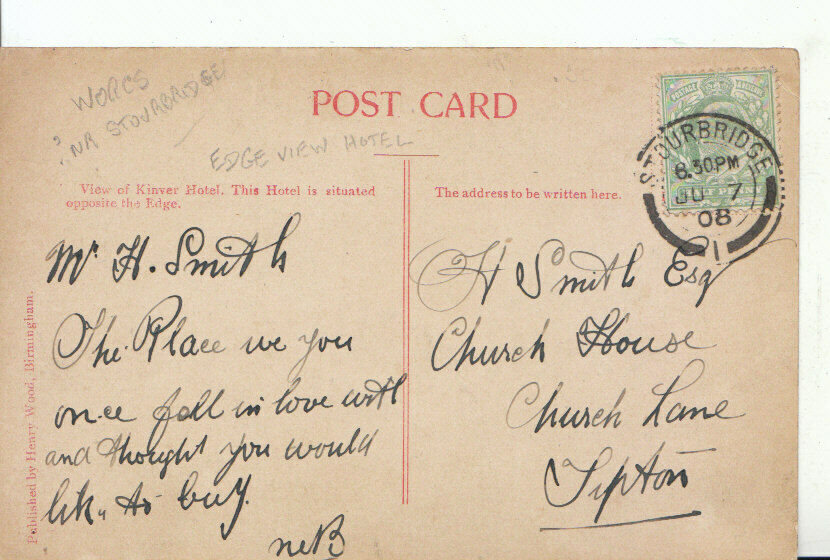 WORCS
? NR STOURBRIDGE
EDGE VIEW HOTEL
POST CARD
View of Kinver Hotel. This Hotel is situated
opposite the Edge.
The address to be written here.
POSTAGE
STOURBRIDGE
6.30PM
JU 7
08
1
Mr H. Smith
The Place we you
once fell in love with
and thought you would
lik to buy.
H Smith Esq
Church House
Church Lane
Tipton
Published by Henry Wood, Birmingham.